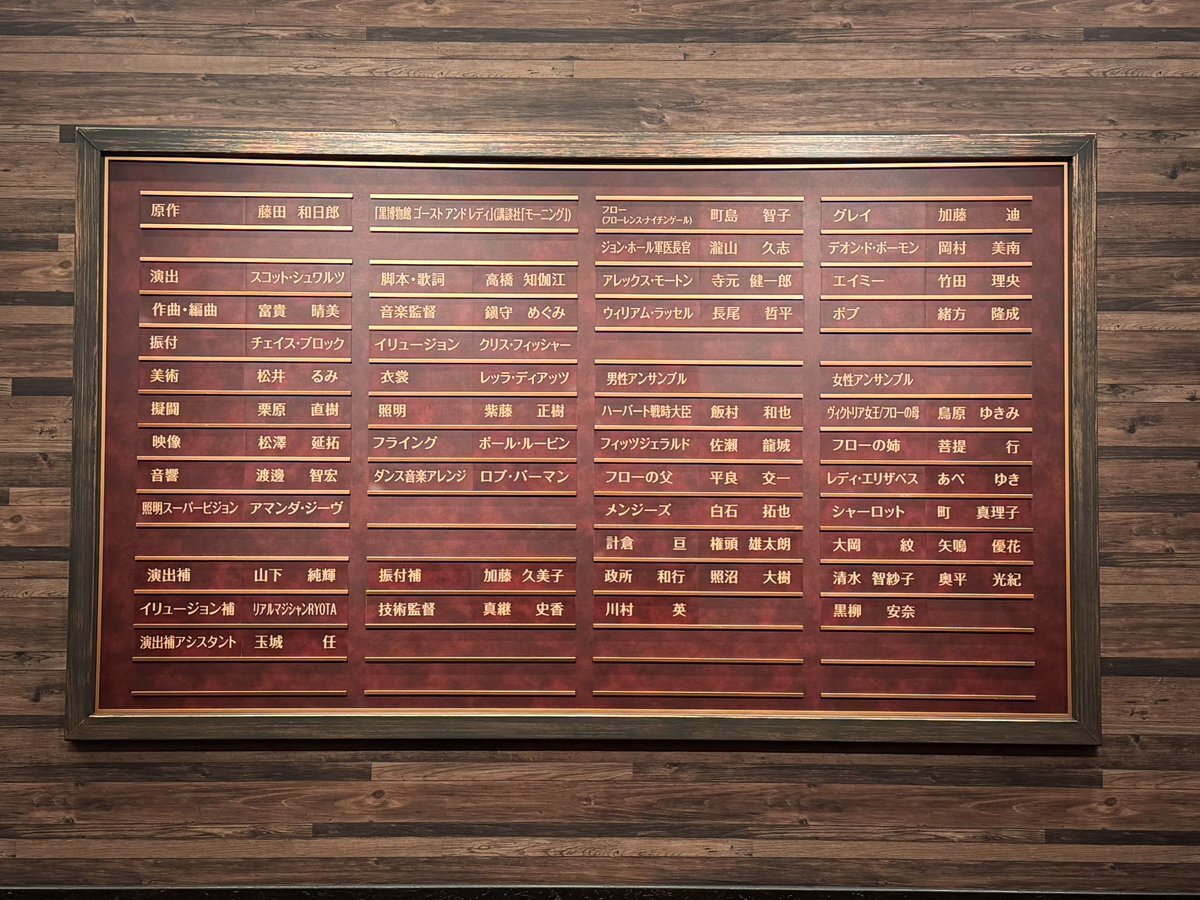 原作 藤田 和日郎
「黒博物館 ゴースト アンド レディ」(講談社「モーニング」)
演出 スコット・シュワルツ
脚本・歌詞 高橋 知伽江
作曲・編曲 富貴 晴美
音楽監督 鎭守 めぐみ
振付 チェイス・ブロック
イリュージョン クリス・フィッシャー
美術 松井 るみ
衣裳 レッラ・ディアッツ
擬闘 栗原 直樹
照明 紫藤 正樹
映像 松澤 延拓
フライング ポール・ルービン
音響 渡邊 智宏
ダンス音楽アレンジ ロブ・バーマン
照明スーパービジョン アマンダ・ジーヴ
演出補 山下 純輝
振付補 加藤 久美子
イリュージョン補 リアルマジシャンRYOTA
技術監督 真継 史香
演出補アシスタント 玉城 任
フロー
(フローレンス・ナイチンゲール) 町島 智子
グレイ 加藤 迪
ジョン・ホール軍医長官 瀧山 久志
デオン・ド・ボーモン 岡村 美南
アレックス・モートン 寺元 健一郎
エイミー 竹田 理央
ウィリアム・ラッセル 長尾 哲平
ボブ 緒方 隆成
男性アンサンブル
女性アンサンブル
ハーバート戦時大臣 飯村 和也
ヴィクトリア女王/フローの母 鳥原 ゆきみ
フィッツジェラルド 佐瀬 龍城
フローの姉 菩提 行
フローの父 平良 交一
レディ・エリザベス あべ ゆき
メンジーズ 白石 拓也
シャーロット 町 真理子
計倉 亘 権頭 雄太朗
大岡 紋 矢鳴 優花
政所 和行 照沼 大樹
清水 智紗子 奥平 光紀
川村 英
黒柳 安奈